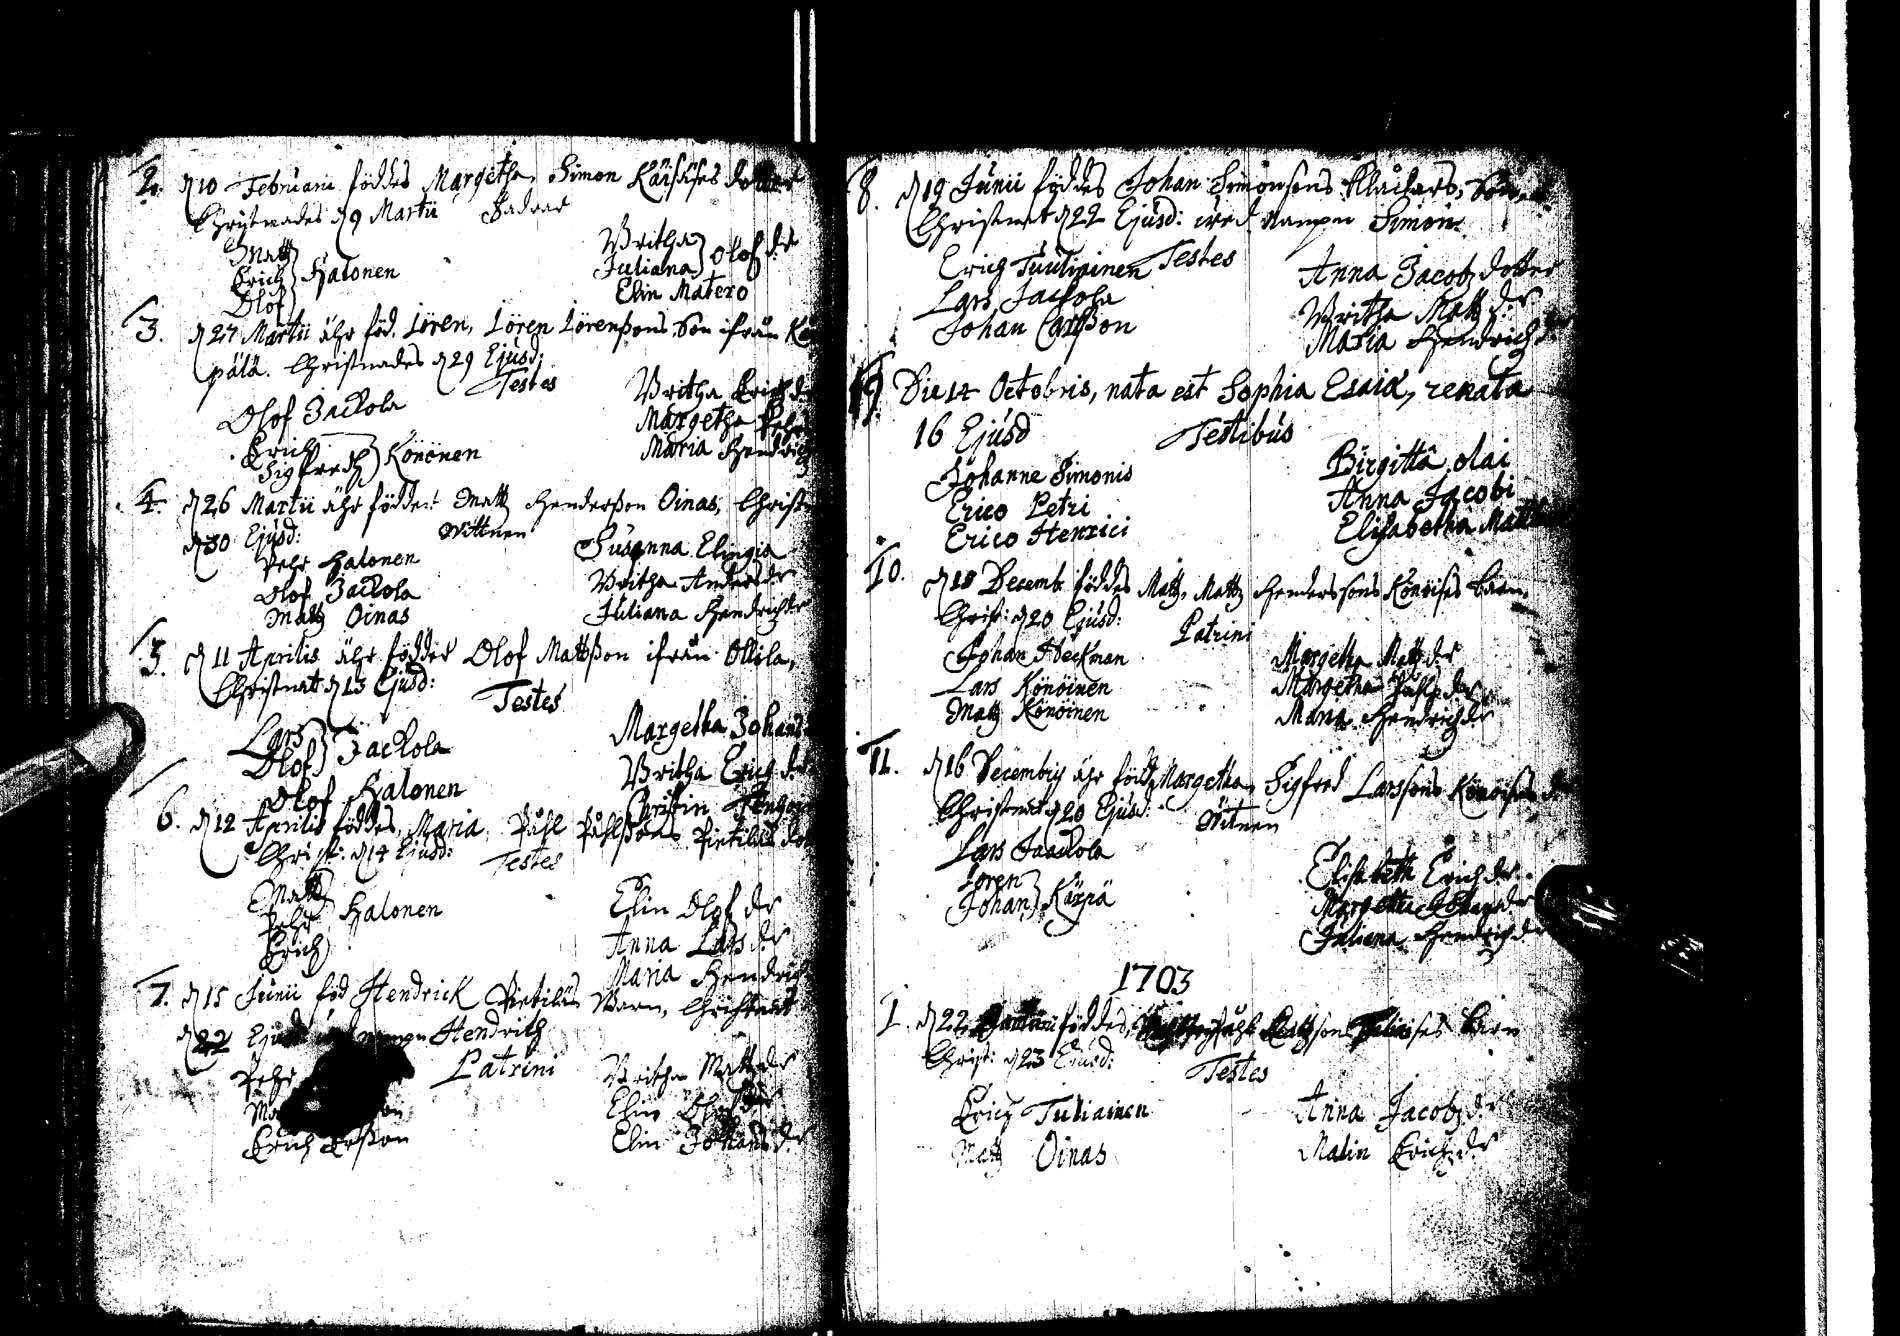 2. d 10 Februarii föddes Margetha, Simon Käisäses dotter
Christnades d 9 Martii Fadrar
Matz
Erich Halonen
Olof
Britha
Juliana Olof dr
Elin Matero
3. d 27 Martii ähr föd. Lören, Lören Lörenßons Son ifrån
pälä. Christnades d 29 Ejusd:
Testes
Olof Jackola
Erich
Sigfredh Könönen
Britha Erich dr
Margetha Pehr
Maria Hendrich
4. d 26 Martii ähr födder Matz Henderßon Oinas, Christ
d 30 Ejusd: Wittnen
Pehr Halonen
Olof Jackola
Matz Oinas
Susanna Elingia
Britha Anders dr
Juliana Hendrichdr
5. d 11 Aprilis ähr födder Olof Matßon ifrån Ollila,
Christnatt d 13 Ejusd:
Testes
Lars
Olof Jackola
Olof Halonen
Margetha Johans
Britha Erich dr
Christin
6. d 12 Aprilis föddes, Maria Påhl Påhlßons Pietiläs dot
Christ: d 14 Ejusd: Testes
Matz
Pehr Halonen
Erich
Elin Olof dr
Anna Lars dr
Maria Hendrich
7. d 15 Junii föd Hendrick Pietiläs Barn, Christnat
d 22 Ejusd Hendrich
Patrini
Pehr
Erich Erßon
Britha Matz dr
Elin Olofs dr
Elin Johans dr
8. d 19 Junii föddes Johan Simonsons Son,
Christnat d 22 Ejusd: wed Nampn Simon.
Testes
Erich Tuuliainen
Lars Jackola
Johan Larßon
Anna Jacobz dotter
Britha Matz dr
Maria Hendrich dr
9 Die 14 Octobris, nata est Sophia Esaiæ, renata
16 Ejusd Testibus
Johanne Simonis
Erico Petri
Erico Henrici
Birgitta Olai
Anna Jacobi
Elisabetha Matt
10. d 18 Decemb. föddes Matz, Matz Henderssons Könöises barn.
Christ: d 20 Ejusd:
Patrini
Johan Heckman
Lars Könöinen
Matz Könöinen
Margetha Matz dr
Margetha Påhls dr
Maria Hendrich dr
11. d 16 Decembris ähr född Margetha, Sigfred Larssons Könöises dr
Christnat d 20 Ejusd: Witnen
Lars Jaackola
Lören
Johan Kärpä
Elisabeth Erich dr.
Margetha Johans dr
Juliana Hendrich dr
1703
1. d 22 föddes, barn
Christ: d 23 Ejusd:
Testes
Erich Tuliainen
Matz Oinas
Anna Jacobz dr
Malin Erich dr